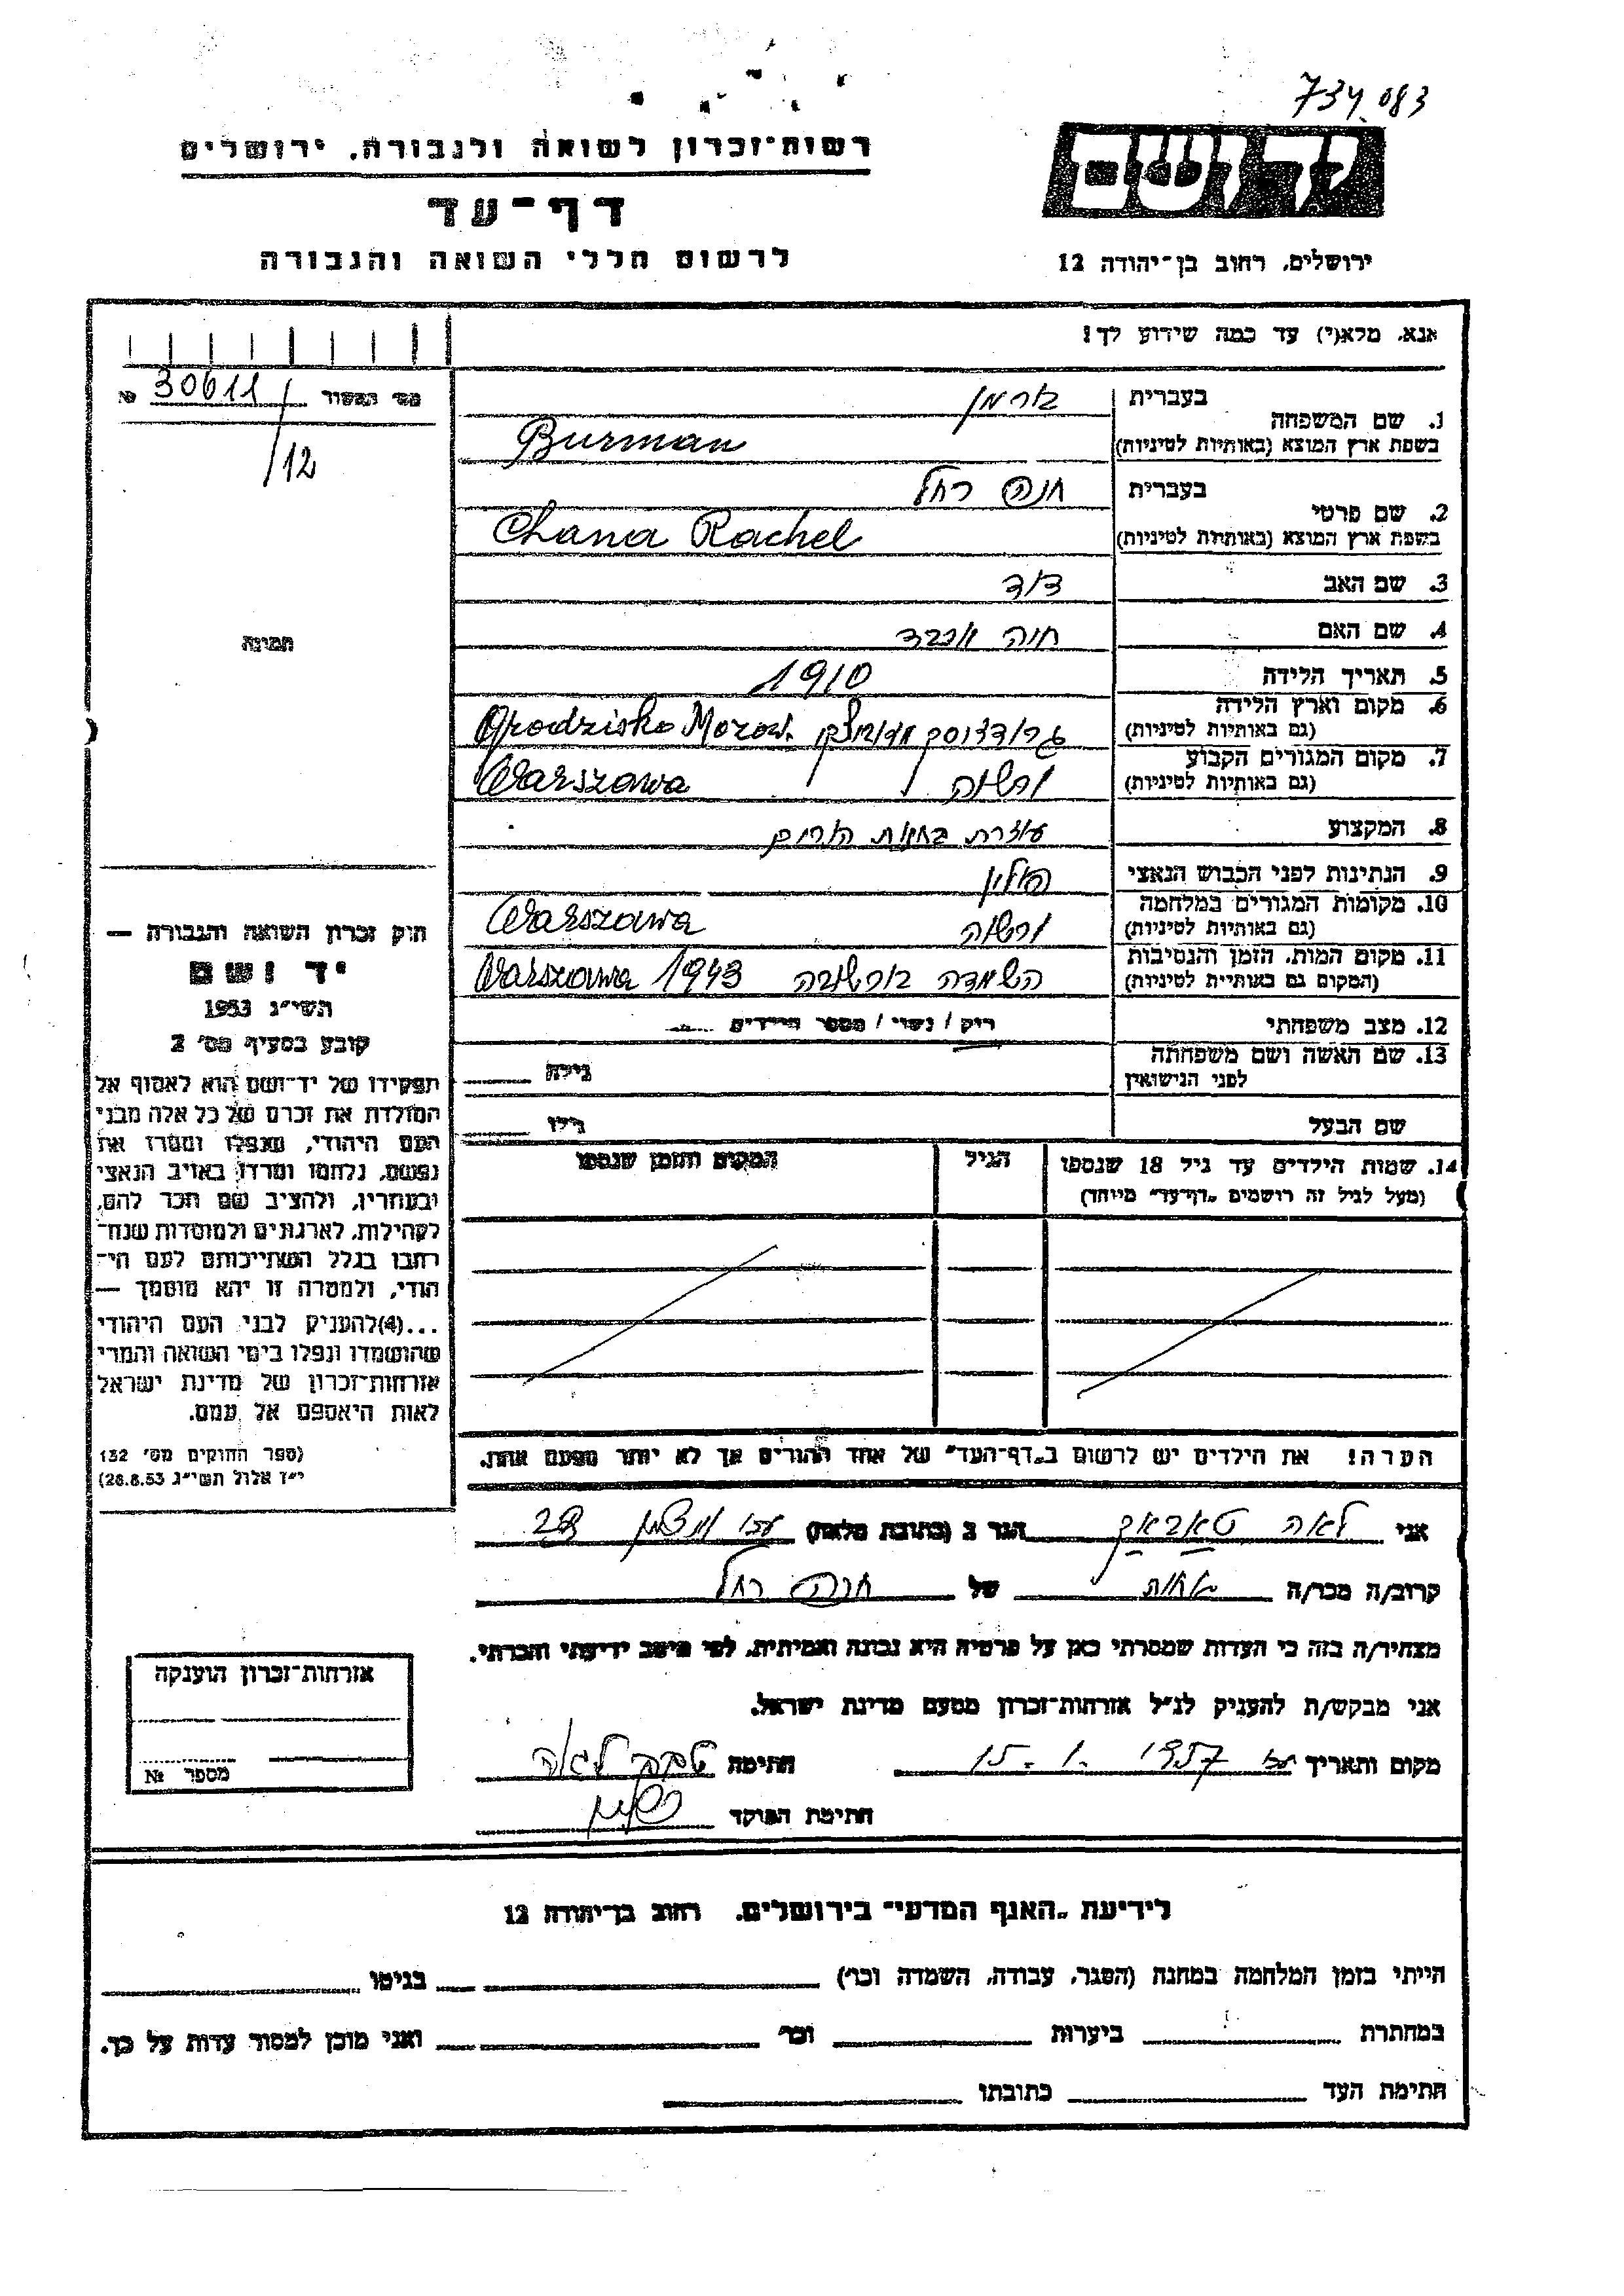 734.083
רשות־זכרון לשואה ולגבורה, ירושלים
דף־עד
לרשום חללי השואה והגבורה
יד ושם
ירושלים, רחוב בן־יהודה 12
אנא, מלא(י) עד כמה שידוע לך!
מס׳ האשור № 30611/
/12
1. שם המשפחה
בעברית בורמן
בשפת ארץ המוצא (באותיות לטיניות) Burman
2. שם פרטי
בעברית חנה רחל
בשפת ארץ המוצא (באותיות לטיניות) Chana Rachel
3. שם האב דוד
4. שם האם חוה
5. תאריך הלידה 1910
6. מקום וארץ הלידה
(גם באותיות לטיניות) Grodzisko Mazow.
7. מקום המגורים הקבוע
(גם באותיות לטיניות) ורשה Warszawa
8. המקצוע עוזרת בחנות
9. הנתינות לפני הכבוש הנאצי פולין
10. מקומות המגורים במלחמה
(גם באותיות לטיניות) ורשה Warszawa
11. מקום המות, הזמן והנסיבות
(המקום גם באותיות לטיניות) השמדה בורשה Warszawa 1943
12. מצב משפחתי רוק / נשוי / מספר הילדים
13. שם האשה ושם משפחתה
לפני הנישואין גילה
שם הבעל גילו
14. שמות הילדים עד גיל 18 שנספו
(מעל לגיל זה רושמים „דף־עד” מיוחד)
הגיל
המקום והזמן שנספו
הערה! את הילדים יש לרשום ב„דף־העד” של אחד ההורים אך לא יותר מפעם אחת.
תמונה
חוק זכרון השואה והגבורה —
יד ושם
תשי״ג 1953
קובע בסעיף מס׳ 2
תפקידו של יד־ושם הוא לאסוף אל
המולדת את זכרם של כל אלה מבני
העם היהודי, שנפלו ומסרו את
נפשם, נלחמו ומרדו באויב הנאצי
ובעוזריו, ולהציב שם וזכר להם,
לקהילות, לארגונים ולמוסדות שנח־
רבו בגלל השתייכותם לעם הי־
הודי, ולמטרה זו יהא מוסמך —
...(4)להעניק לבני העם היהודי
שהושמדו ונפלו בימי השואה והמרי
אזרחות־זכרון של מדינת ישראל
לאות היאספם אל עמם.
(ספר החוקים מס׳ 132
י״ז אלול תשי״ג 28.8.53)
אני לאה טאבאק הגר ב (כתובת מלאה) 28
קרוב/ה מכר/ה אחות של חנה רחל
מצהיר/ה בזה כי העדות שמסרתי כאן על פרטיה היא נכונה ואמיתית, לפי מיטב ידיעתי והכרתי.
אני מבקש/ת להעניק לנ״ל אזרחות־זכרון מטעם מדינת ישראל.
מקום ותאריך 15.1.1957 חתימה טבק לאה
חתימת הפוקד
אזרחות־זכרון הוענקה
מספר №
לידיעת „האגף המדעי” בירושלים, רחוב בן־יהודה 12
הייתי בזמן המלחמה במחנה (הסגר, עבודה, השמדה וכו׳) בגיטו
במחתרת ביערות וכו׳ ואני מוכן למסור עדות על כך.
חתימת העד כתובתו